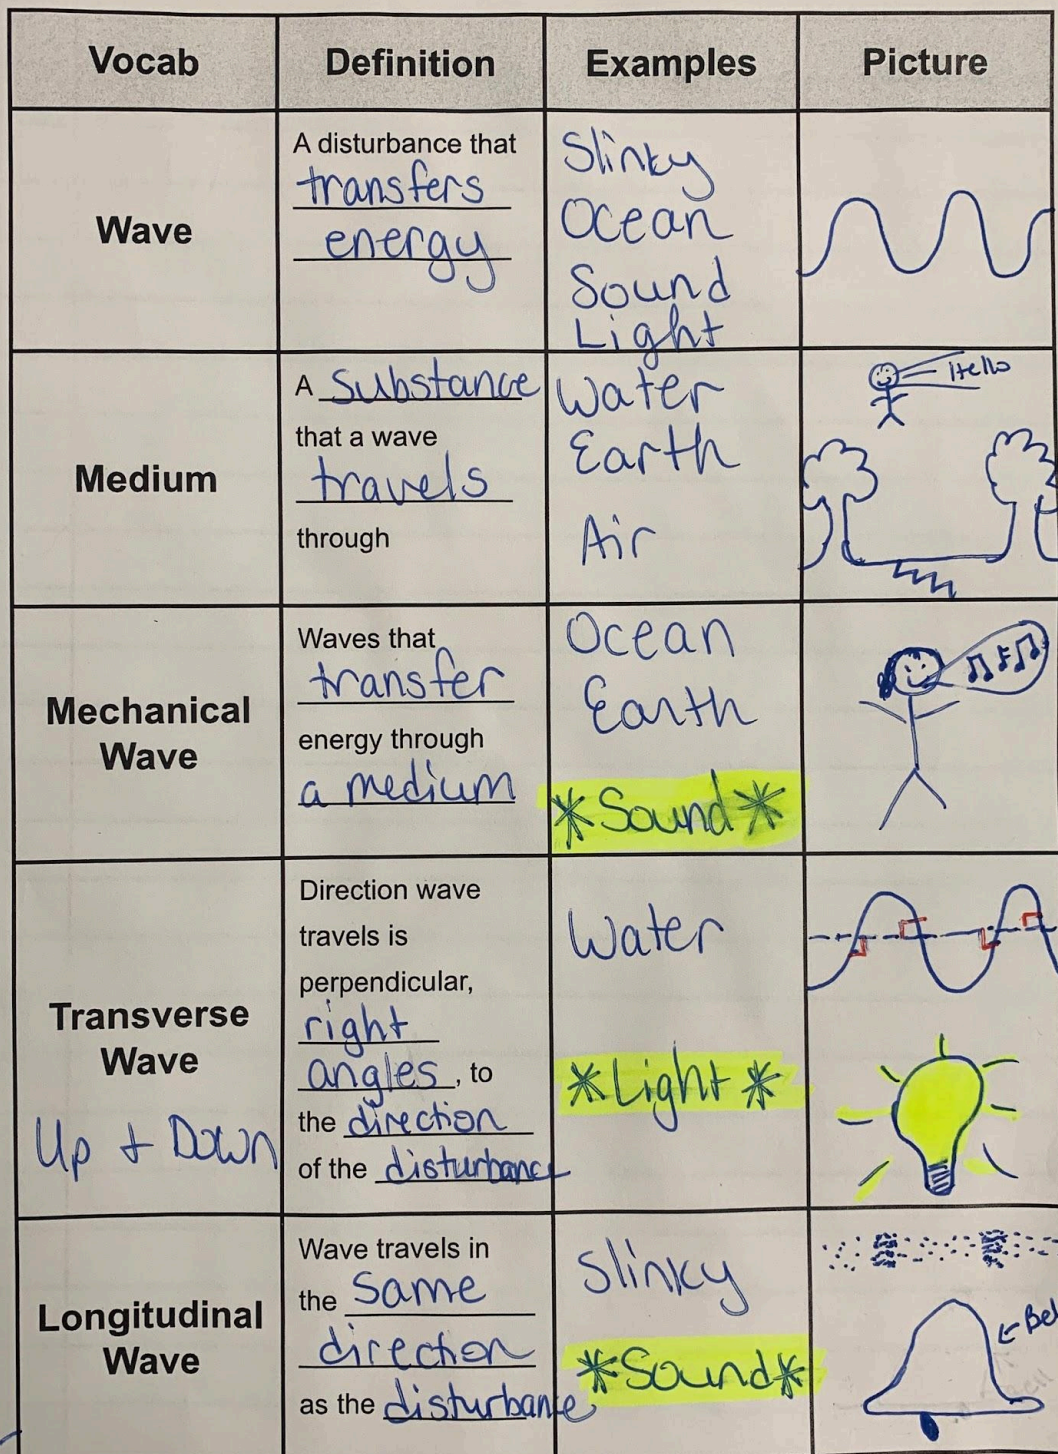 Vocab Definition Examples Picture
Wave
A disturbance that
transfers
energy
Slinky
Ocean
Sound
Light
Medium
A substance
that a wave
travels
through
Water
Earth
Air
Hello
Mechanical
Wave
Waves that
transfer
energy through
a medium
Ocean
Earth
*Sound*
Transverse
Wave
Up + Down
Direction wave
travels is
perpendicular,
right
angles, to
the direction
of the disturbance
Water
*Light*
Longitudinal
Wave
Wave travels in
the same
direction
as the disturbance
Slinky
*Sound*